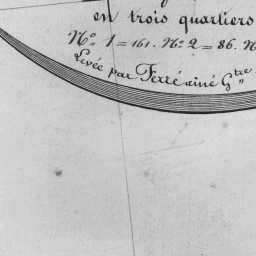 en trois quartiers
No. 1 = 161. No. 2 = 86. N
Levée par Ferré ainé Gtre